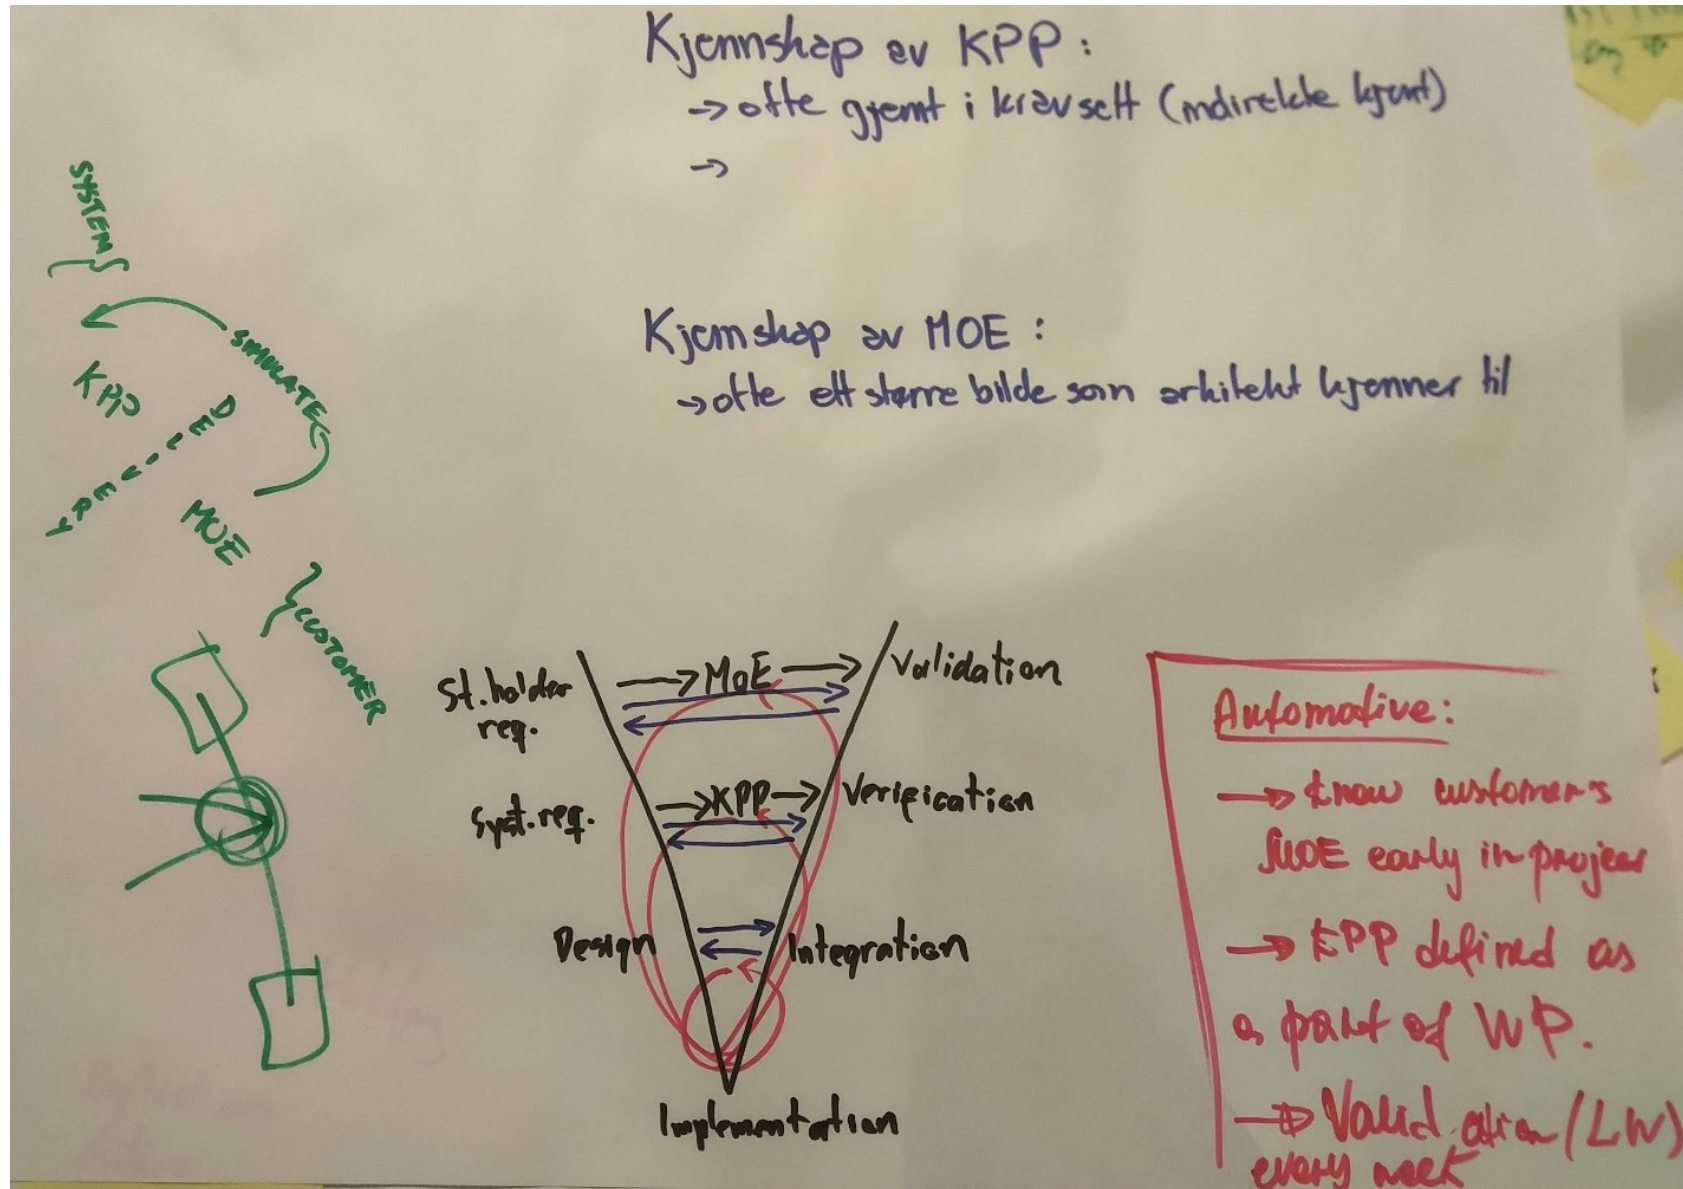 Kjennskap av KPP:
→ ofte gjemt i kravsett (indirekte kjent)
→
Kjennskap av MOE:
→ ofte ett større bilde som arkitekt kjenner til
SYSTEM
SIMULATE
KPP
DELIVERY
MOE
CUSTOMER
St.holder → MoE → Validation
req.
Syst.req. → KPP → Verification
Design Integration
Implementation
Automotive:
→ know customers
MOE early in project
→ KPP defined as
a part of WP.
→ Validation (LW)
every week